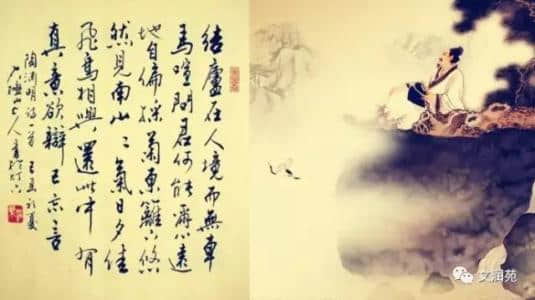 結廬在人境而無車
馬喧問君何能爾心遠
地自偏採菊東籬下悠
然見南山〻氣日夕佳
飛鳥相與還此中有
真意欲辯已忘言
陶淵明詩一首
山人書於灯下
文润苑